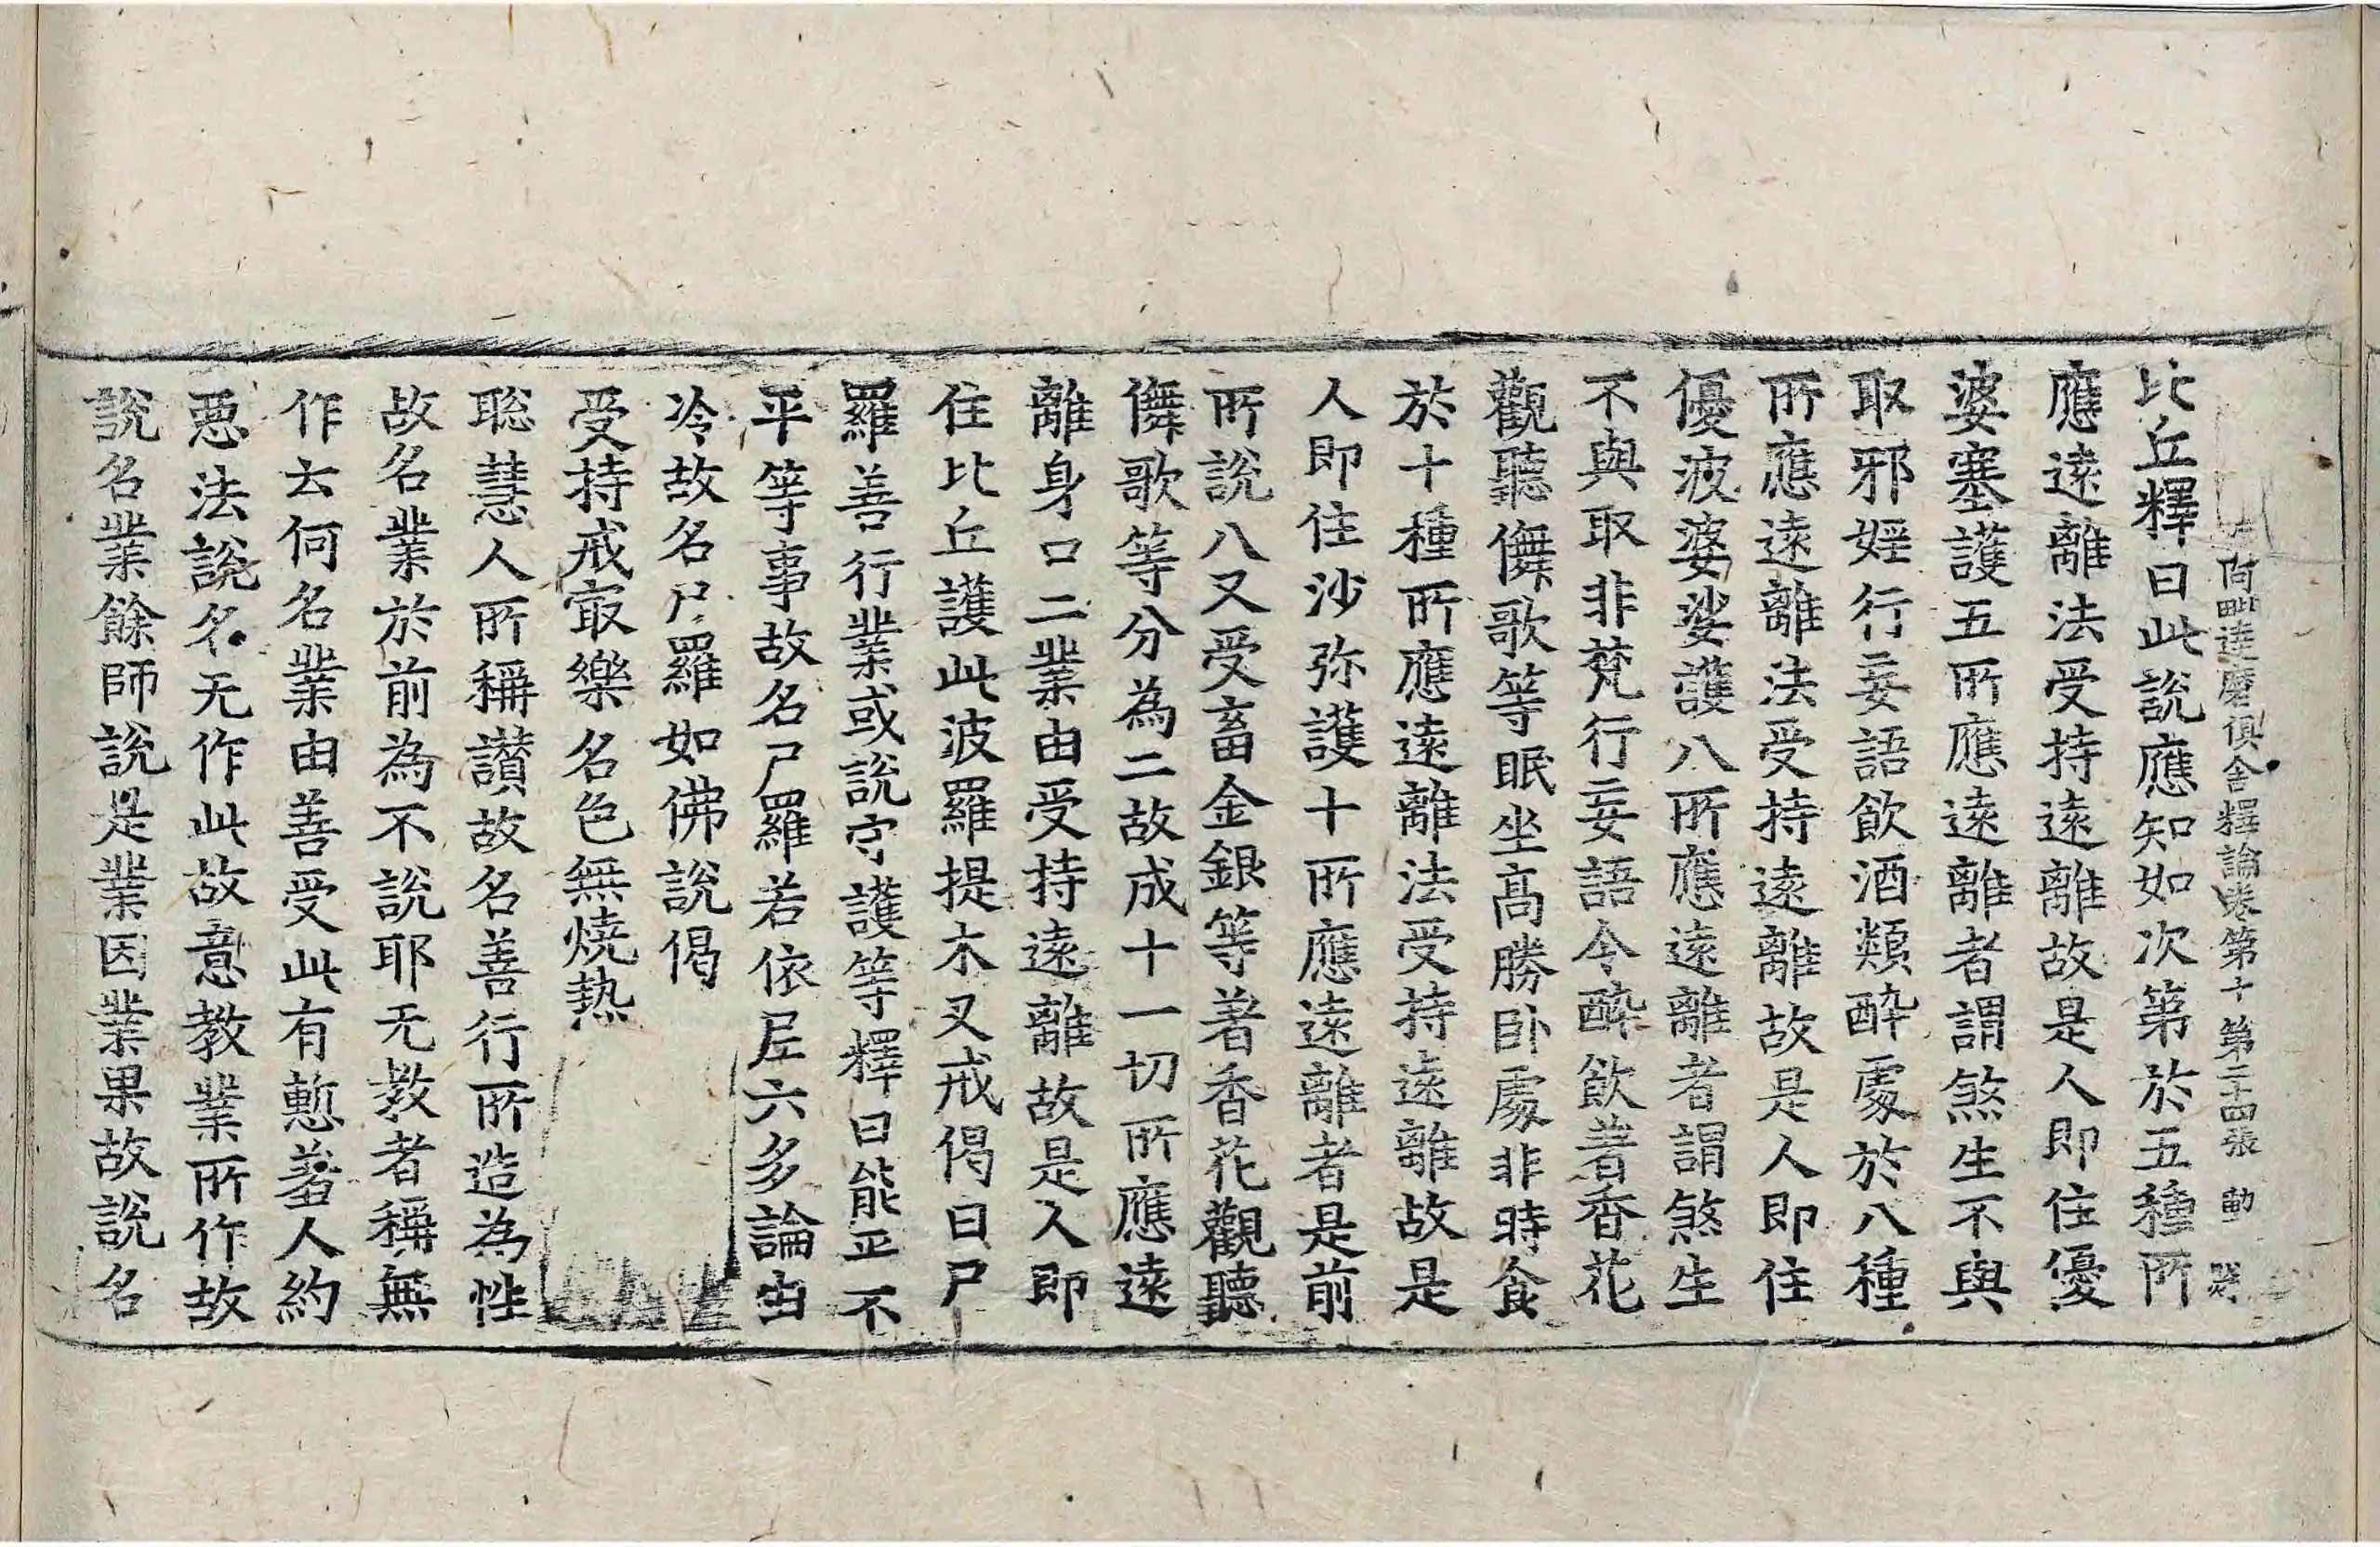 阿毗達磨俱舍釋論卷第十 第二十四張 動
比丘釋曰此說應知如次第於五種所
應遠離法受持遠離故是人即住優
婆塞護五所應遠離者謂煞生不與
取邪婬行妄語飲酒類醉處於八種
所應遠離法受持遠離故是人即住
優波婆娑護八所應遠離者謂煞生
不與取非梵行妄語令醉飲著香花
觀聽儛歌等眠坐高勝卧處非時食
於十種所應遠離法受持遠離故是
人即住沙弥護十所應遠離者是前
所說八又受畜金銀等著香花觀聽
儛歌等分為二故成十一切所應遠
離身口二業由受持遠離故是人即
住比丘護此波羅提木叉戒偈曰尸
羅善行業或說守護等釋曰能正不
平等事故名尸羅若依尼六多論由
冷故名尸羅如佛說偈
受持戒㝡樂名色無燒热
聡慧人所稱讃故名善行所造為性
故名業於前為不說耶无教者稱無
作云何名業由善受此有慙羞人約
惡法說名无作此故意教業所作故
說名業餘師說是業因業果故說名